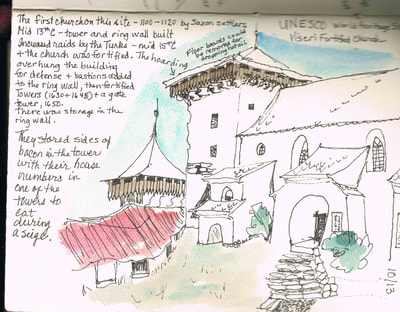 The first church on this site - 1100-1120 by Saxon settlers
Mid 13th C - tower and ring wall built
Increased raids by the Turks - mid 15th C
+ the church was fortified. The hoarding
overhung the building
for defense + bastions added
to the ring wall, then fortified
towers (1630 + 1648) + a gate
tower, 1650.
There was storage in the
ring wall.
They stored sides of
bacon in the tower
with their house
numbers in
one of the
towers to
eat
during
a siege.
Floor boards could
be removed for
dropping
UNESCO World Heritage Site
Viscri Fortified Church
10/13